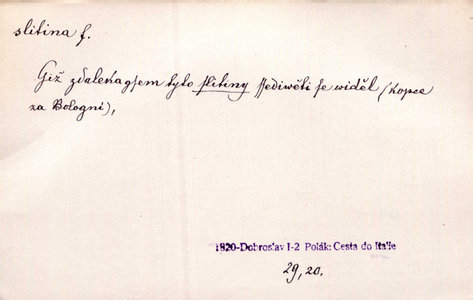 slitina f.
Giž zdaleka gsem tyto slitiny ssediwěti se widěl (kopce
za Bologni),
1820-Dobroslav I-2 Polák: Cesta do Italie
29, 20.